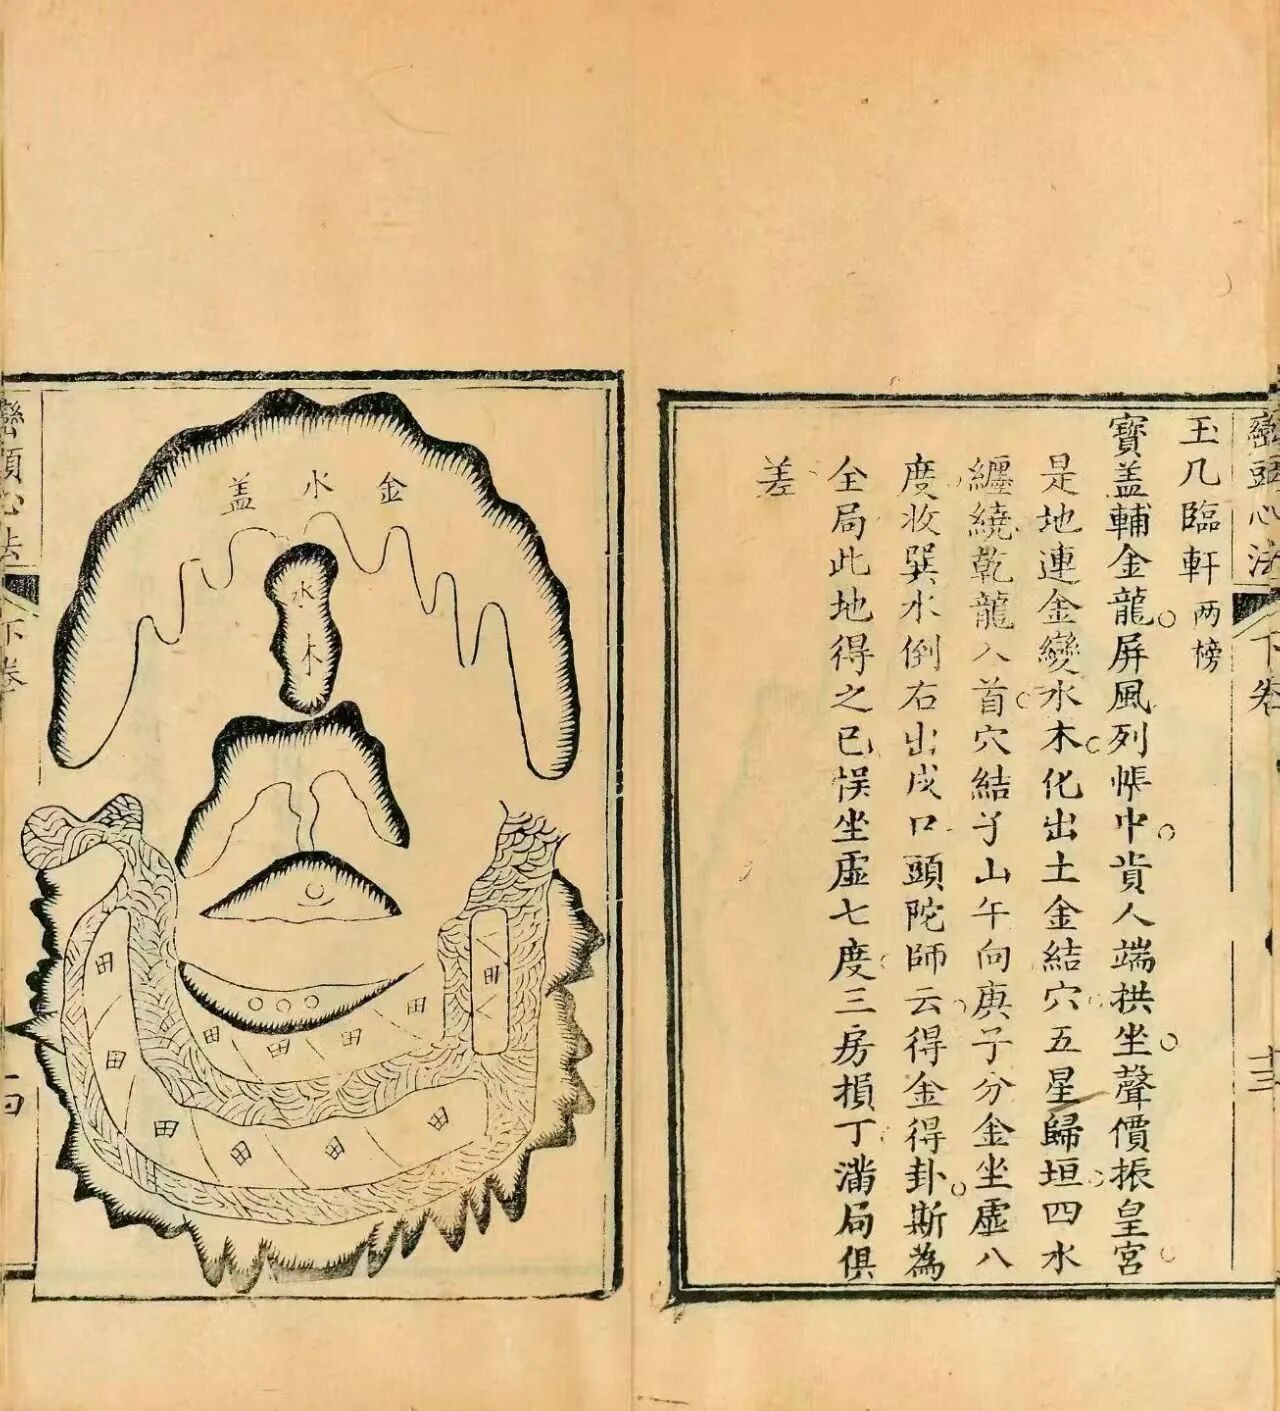 巒頭心法
下卷
十三
玉几臨軒 两榜
寶盖輔金龍屏風列帳中貴人端拱坐聲價振皇宮
是地連金變水木化出土金結穴五星歸垣四水
纏繞乾龍入首穴結子山午向庚子分金坐虛八
度收巽水倒右出戍口頭陀師云得金得卦斯為
全局此地得之已悮坐虛七度三房損丁滿局俱
差
金水盖
水木
田
田
田
田
田
田
田
田
田
田
巒頭心法
下卷